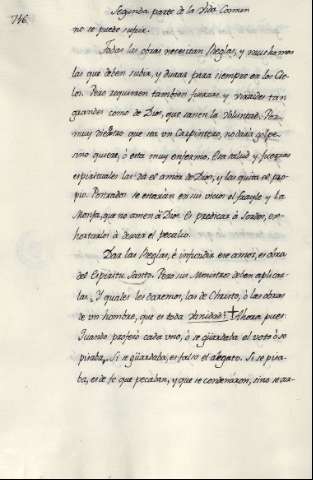 746.
Segunda parte de la vida Comun
no se puede sufrir.
Todas las obras necesitan Reglas, y mucho mas
las que deben subir, y durar para siempre en los Cie-
los. Pero requieren tambien fuerzas, y virtudes tan
grandes como de Dios, que sanen la voluntad. Por
muy diestro que sea un Carpintero, no dará golpe si
no quiere, ò esta muy enfermo. Esta salud y fuerzas
espirituales las da el amor de Dios, y las quita el pro-
pio. Postrados se estarian en su vicio el frayle y la
Monja, que no amen à Dios. Es predicar à Sordos, ex-
hortarlos à dexar el pecado.
Dar las Reglas, è infundir ese amor, es obra
del Espiritu Santo. Pero sus Ministros deben aplicar-
las. Y quales les daremos, las de Christo, ò las obras
de un hombre, que es toda vanidad? † Ahora pues:
Quando profesò cada uno, ò se guardaba el voto ò se
pisaba. Si se guardaba, es falso el alegato. Si se pisa-
ba, es de fè que pecaban, y que se condenaron, sino se ar-